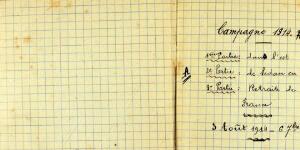 Campagne 1914.
1ère Partie: dans l'est
2e Partie: de Sedan en
3e Partie: Retraite de
France
3 Août 1914 - 6 7bre